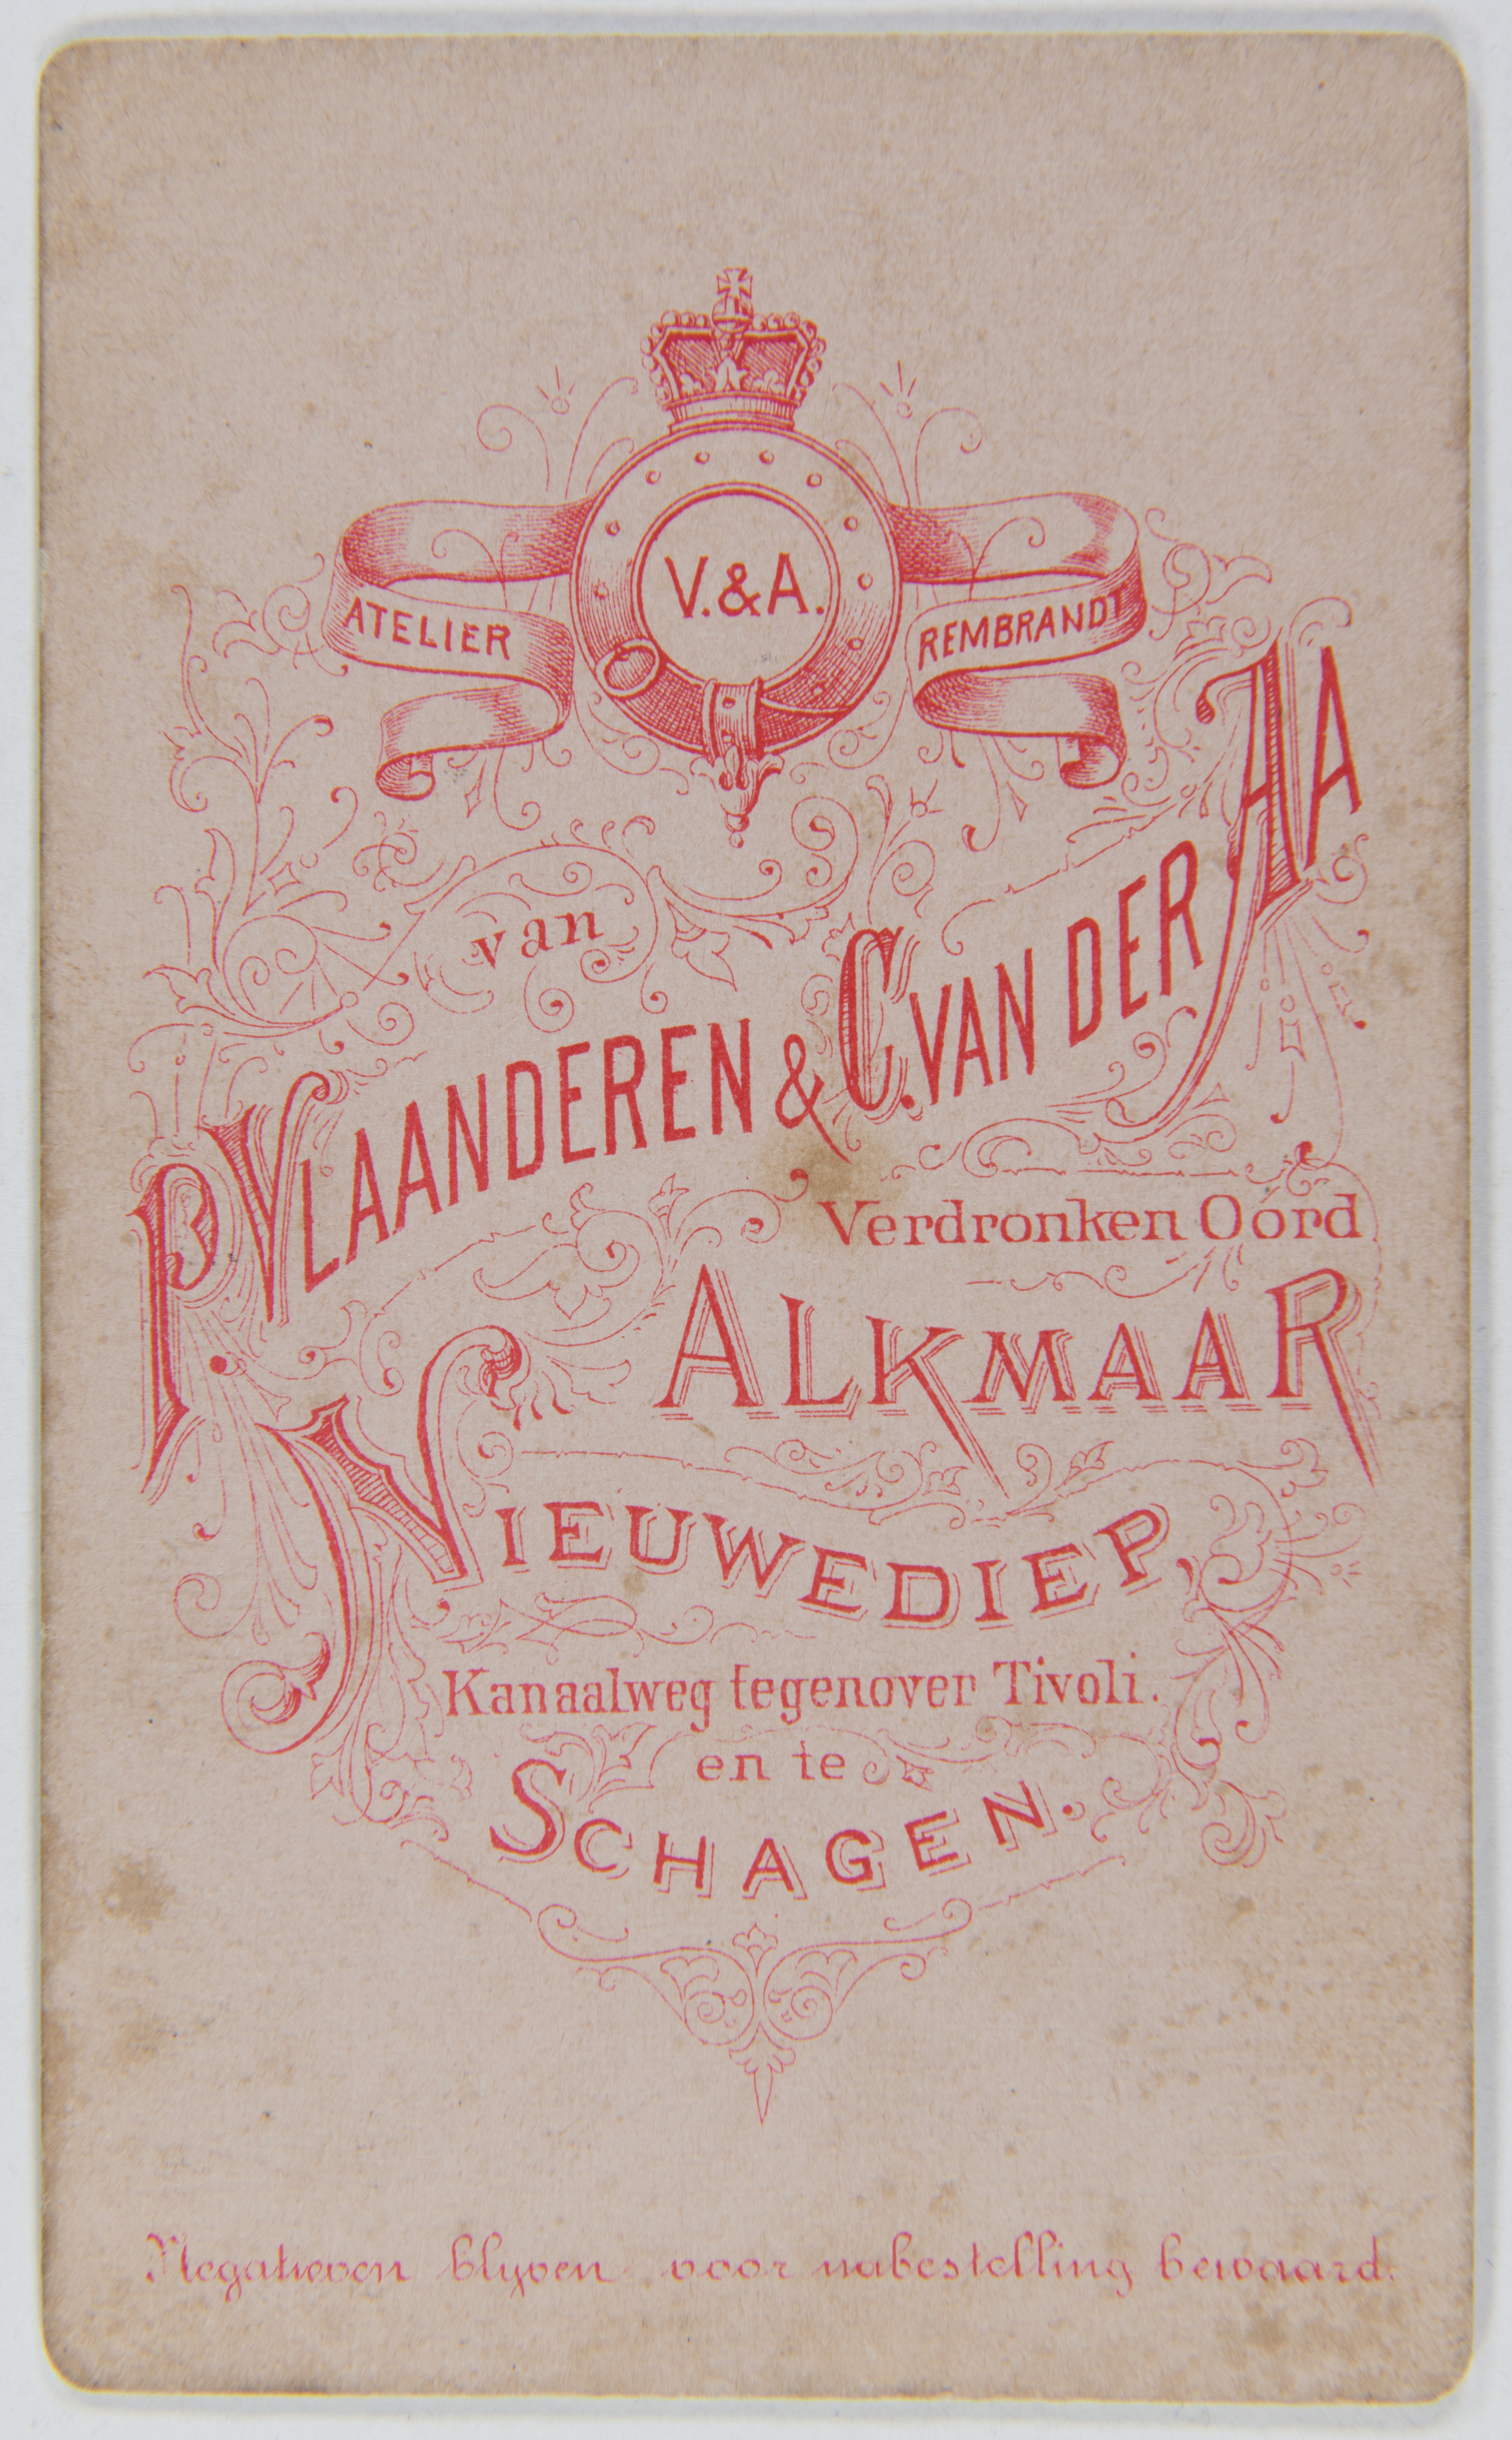 V. & A.
ATELIER REMBRANDT
van
P. VLAANDEREN & C. VAN DER AA
Verdronken Oórd
ALKMAAR
NIEUWEDIEP,
Kanaalweg tegenover Tivoli.
en te
SCHAGEN.
Negatieven blyven voor nabestelling bewaard.